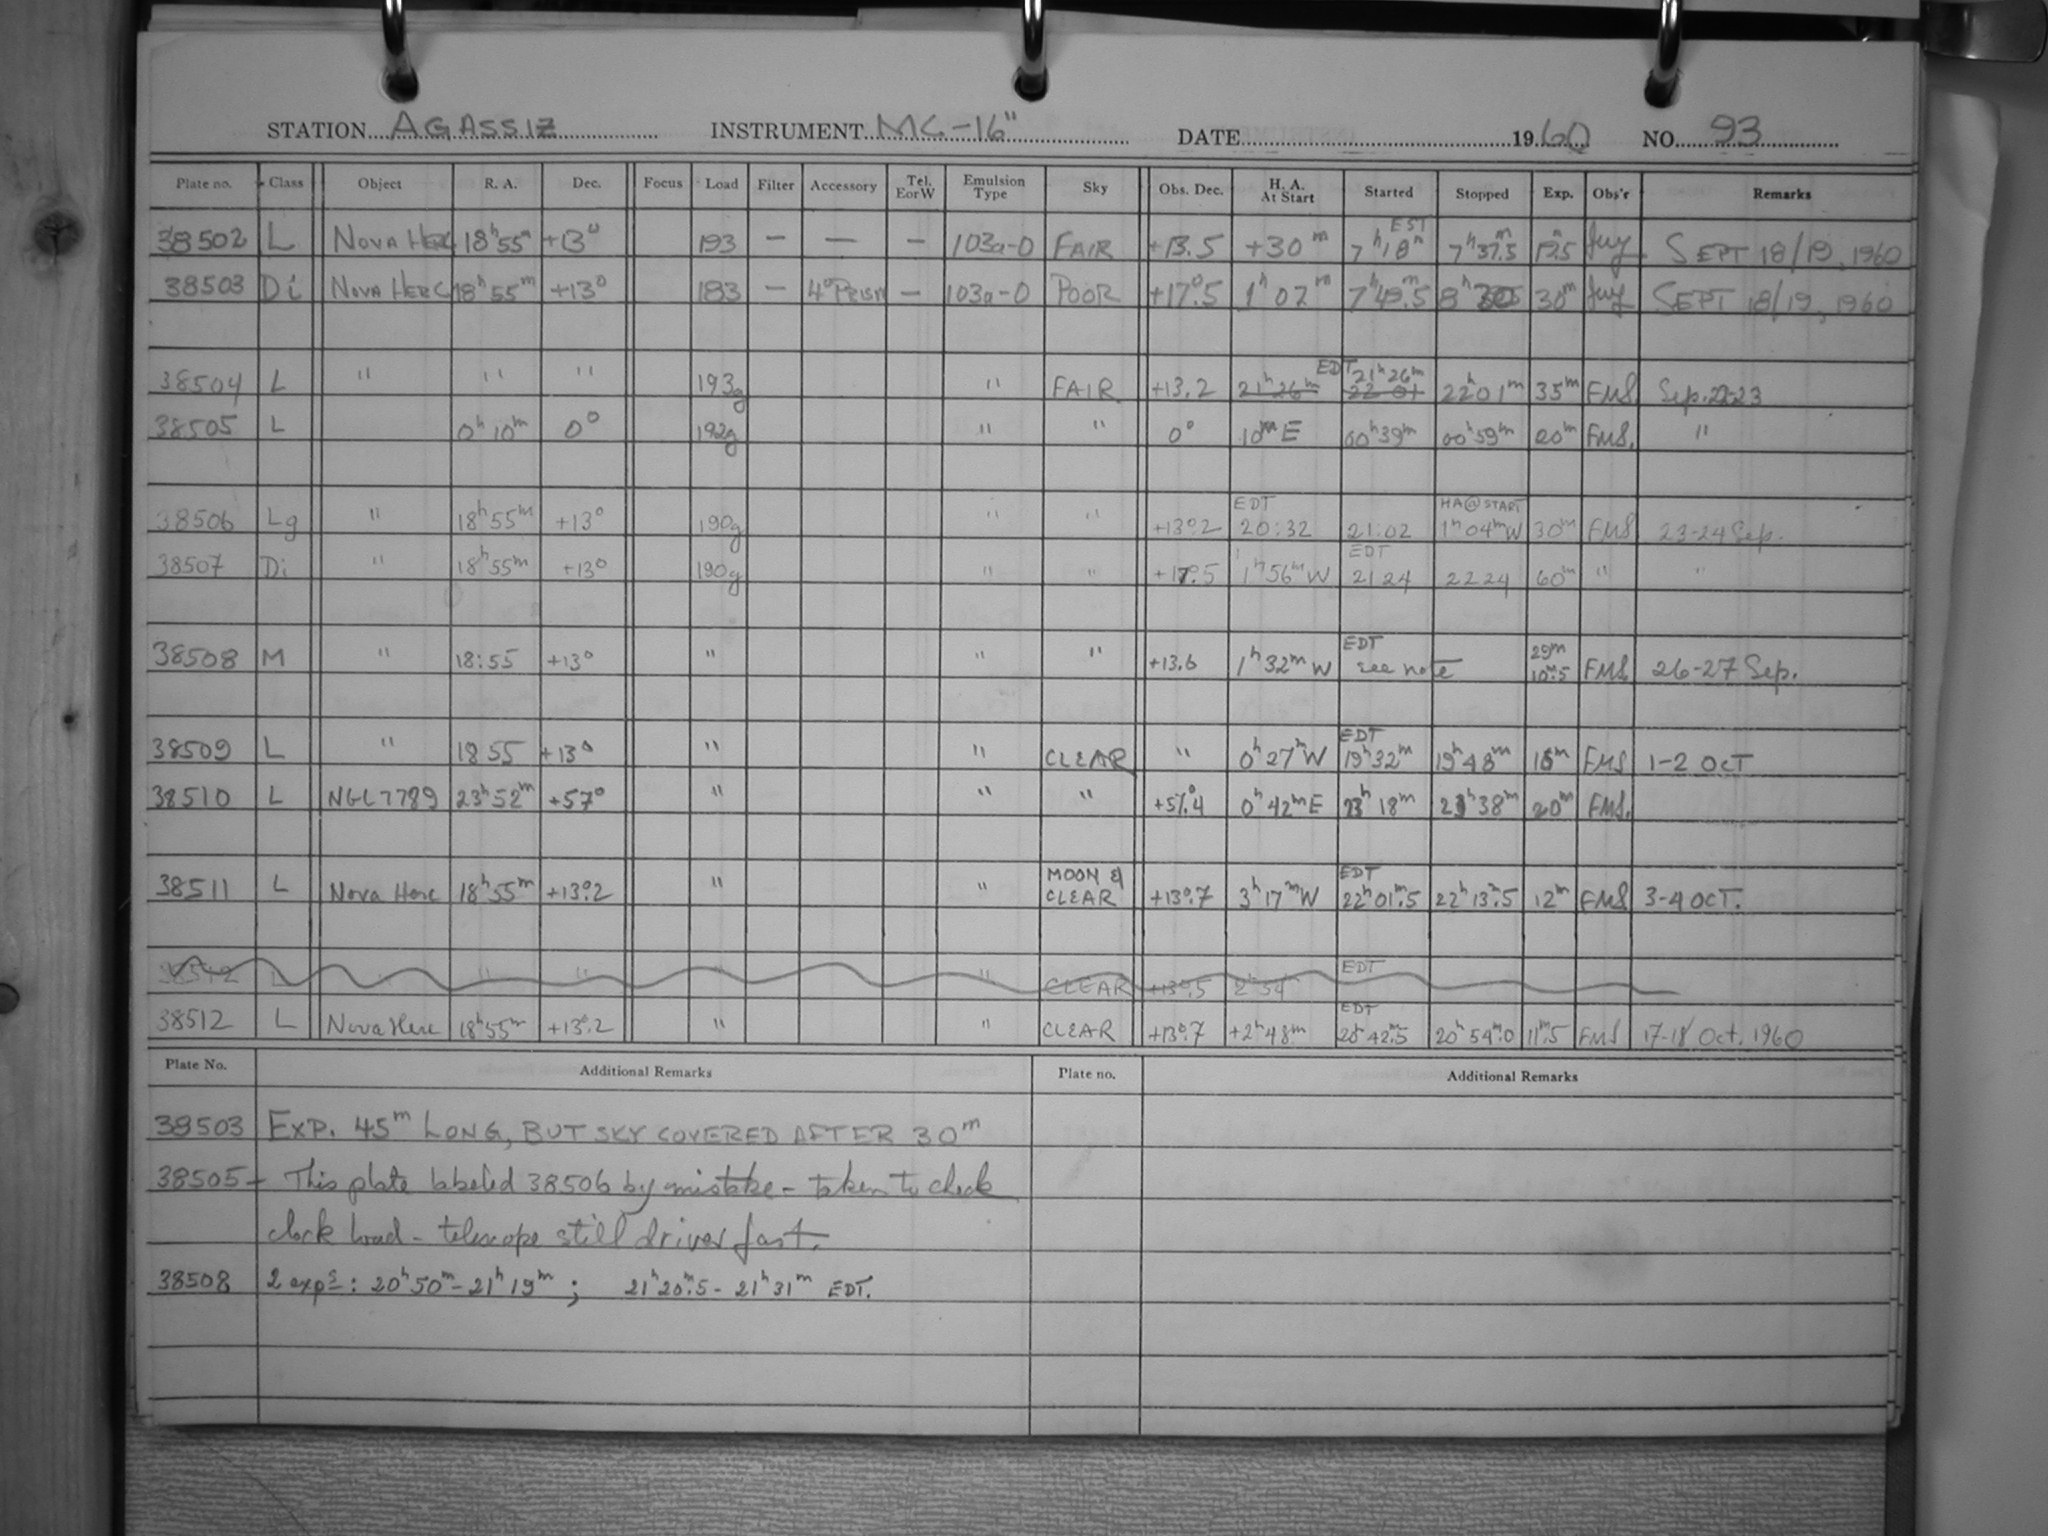 STATION AGASSIZ INSTRUMENT MC-16" DATE 1960 NO. 93
Plate no. Class Object R. A. Dec. Focus Load Filter Accessory Tel. E or W Emulsion Type Sky Obs. Dec. H. A. At Start Started Stopped Exp. Obs'r Remarks
38502 L NOVA HERC 18h55m +13° 193 - - - 103a-O FAIR +13.5 +30m EST 7h18m 7h37.5m 19.5m SEPT 18/19, 1960
38503 Di NOVA HERC 18h55m +13° 183 - 4° PRISM - 103a-O POOR +17°.5 1h07m 7h49m.5 8h 30m SEPT 18/19, 1960
38504 L " " " 193g " FAIR +13.2 21h26m EDT 21h26m 22 01 22h01m 35m FMS Sep. 22-23
38505 L 0h10m 0° 192g " " 0° 10m E 00h39m 00h59m 20m FMS. "
38506 Lg " 18h55m +13° 190g " " +13°.2 EDT 20:32 21:02 HA@START 1h04mW 30m FMS 23-24 Sep.
38507 Di " 18h55m +13° 190g " " +17°.5 1h56mW EDT 2124 2224 60m " "
38508 M " 18:55 +13° " " " +13.6 1h32mW EDT see note 29m 10m.5 FMS 26-27 Sep.
38509 L " 18 55 +13° " " CLEAR " 0h27mW EDT 19h32m 19h48m 16m FMS 1-2 OCT
38510 L NGC7789 23h52m +57° " " " +57°.4 0h42mE 18m 38m 20m FMS.
38511 L Nova Herc 18h55m +13°.2 " " MOON & CLEAR +13°.7 3h17mW EDT 22h01m.5 22h13m.5 12m FMS 3-4 OCT.
38512 L " " " " CLEAR +13°.5 2h54 EDT
38512 L Nova Herc 18h55m +13°.2 " " CLEAR +13°.7 +2h48m EDT 20h42m.5 20h54m.0 11m.5 FMS 17-18 Oct. 1960
Plate No. Additional Remarks Plate no. Additional Remarks
38503 EXP. 45m LONG, BUT SKY COVERED AFTER 30m
38505 - This plate labeled 38506 by mistake - taken to check
clock load - telescope still drives fast.
38508 2 exps: 20h50m-21h19m; 21h20m.5-21h31m EDT.